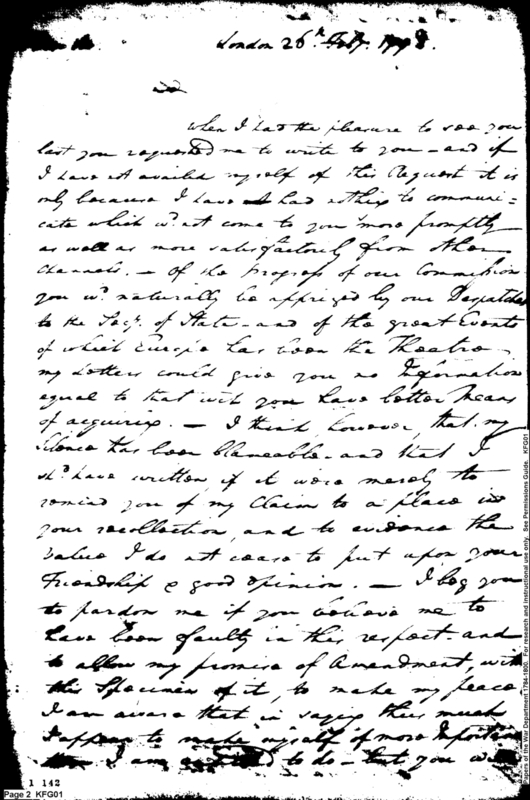 London 26th Feby. 1798.
when I had the pleasure to see you
last you requested me to write to you – and if
I have not availed myself of this Request it is
only because I have had nothing to communi=
cate which wd. not come to you more promptly
as well as more satisfactorily from other
Channels. – Of the Progress of our Commission
you wd. naturally be apprized by our Despatches
to the Secy. of State – and of the great Events
of which Europe has been the Theatre
my Letters could give you no Information
equal to that wch you have better Means
of acquiring. – I think, however, that my
silence has been blameable – and that I
shd. have written, if it were merely to
remind you of my Claim to a place in
your recollection, and to evidence the
Value I do not cease to put upon your
Friendship & good opinion. – I beg you
to pardon me if you believe me to
have been faulty in this respect – and
to allow my promise of Amendment, with
this Specimen of it, to make my peace
I am aware that in saying thus much
I appear to make myself of more Importance
than I am to do – but you will
1 142
Page 2 KFG01
Papers of the War Department 1784-1800. For research and instructional use only. See Permissions Guide. KFG01